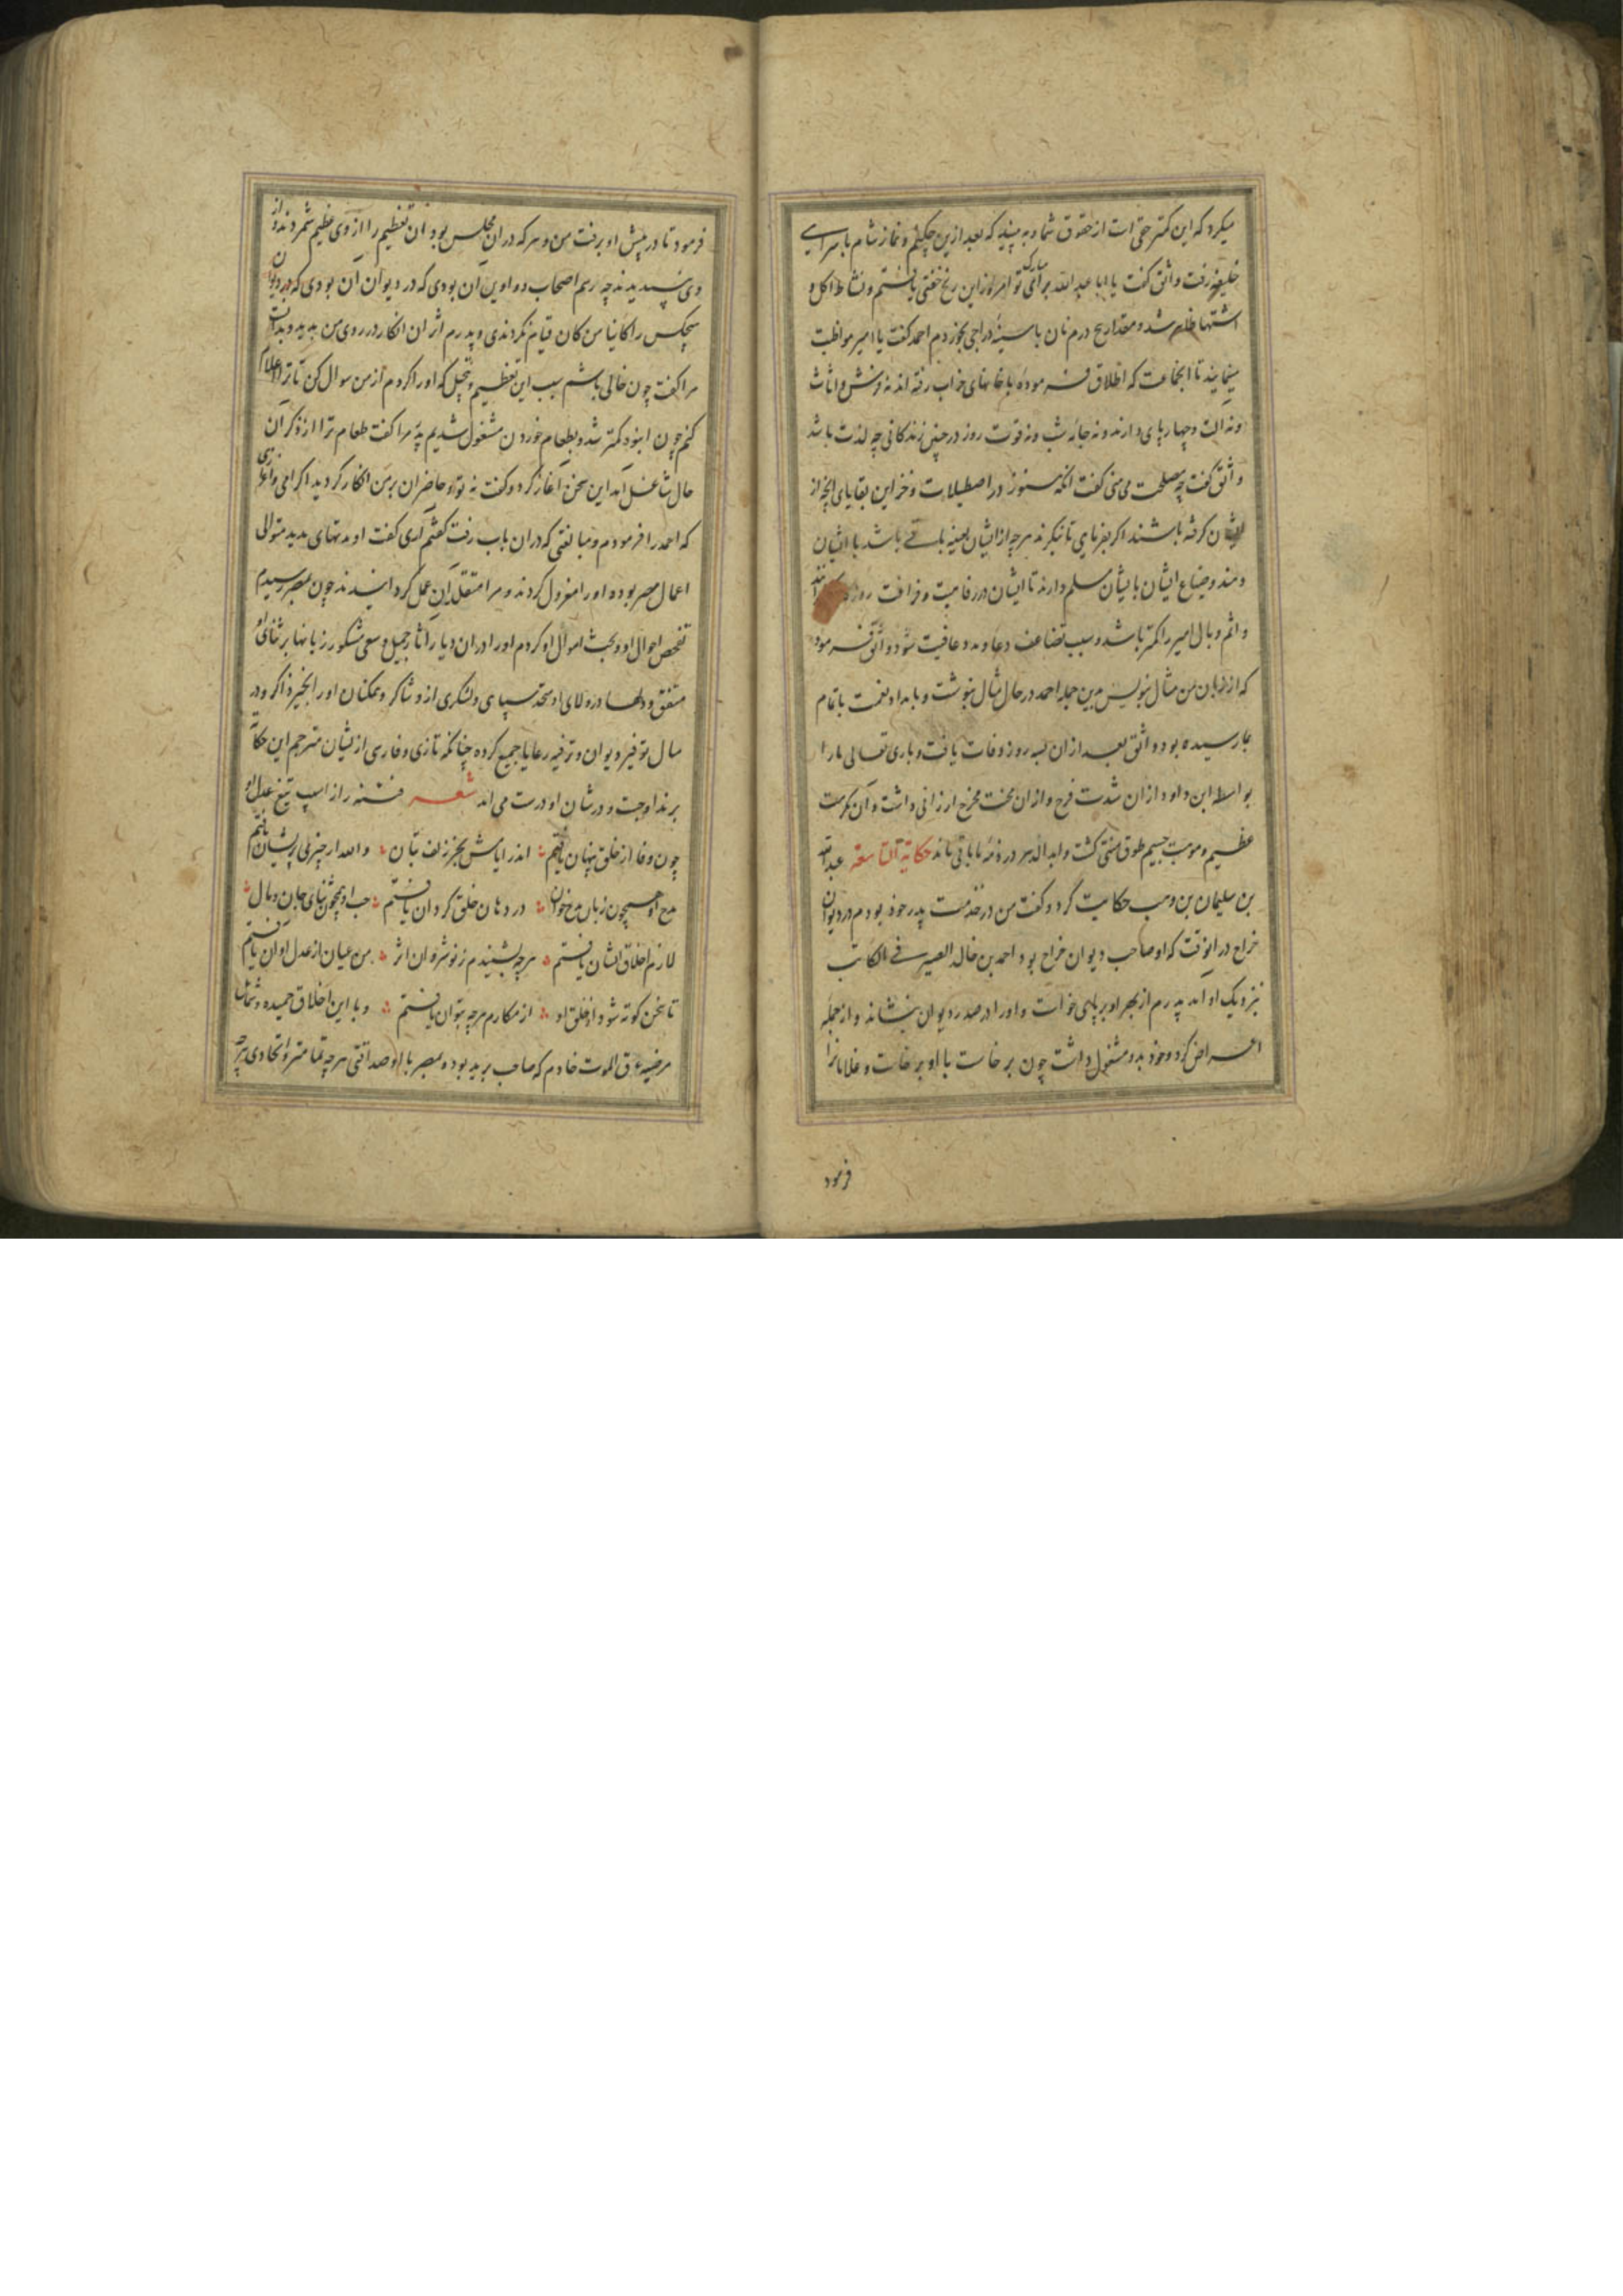 میکرد که این کمتر حقی است از حقوق شما و به بینید که بعد ازین چکنم و نماز شام با سرای
خلیفه رفت واثق گفت یا ابا عبدالله برای مبارک تو امروز ازین رنج خفتی یافتم و نشاط اکل و
اشتها ظاهر شد و مقدار پنج درم نان با سینه دراجی بخوردم احمد گفت یا امیر مواظبت
مینمایند تا انجماعت که اطلاق فرموده با خانهای خراب رفته اند نه فرش و اثاث
و نه الت و چهارپای دارند و نه جامه شب و نه قوت روز در چنین زندکانی چه لذت باشد
واثق گفت چه مصلحت می بینی گفت انکه هنوز در اصطبلات و خزاین بقایای انچه از
ایشان گرفته باشند اگر بفرمایی تا بنگرند هرچه از ایشان بعینه باقی باشد با ایشان
دهند و ضیاع ایشان بایشان مسلم دارند تا ایشان در رفاهیت و فراغت روز
و اثم و بال امیر را کمتر باشد و سبب تضاعف دعا و مدد عافیت شود واثق فرمود
که از زبان من مثال بنویس بدین جمله احمد در حال مثال بنوشت و بامداد نعمت با تمام
بما رسیده بود و واثق بعد از ان بسه روز وفات یافت و باری تعالی ما را
بواسطه ابن داود از ان شدت فرح و از ان محنت مخرج ارزانی داشت و آن مکرمت
عظیم و موهبت جسیم طوق منتی گشت و ابد الدهر در ذمه ما باقی ماند حکایة التاسعة عبدالله
بن سلیمان بن وهب حکایت کرد و گفت من در خدمت پدر خود بودم در دیوان
خراج در انوقت که او صاحب دیوان خراج بود احمد بن خالد الصیرفی الکاتب
نزدیک او آمد پدرم از بهر او بر پای خواست و او را در صدر دیوان بنشاند و از جمله
اعراض کرد و خود بدو مشغول داشت چون بر خاست با او بر خاست و غلامانرا
فرمود
فرمود تا در پیش او برفتند من و هر که در ان مجلس بود ان تعظیم را از وی عظیم شمردند و از
وی نپسندیدند چه رسم اصحاب دواوین ان بودی که در دیوان ان بودی که در دیوان
هیچکس را کاینا من کان قیام نکردندی و پدرم اثر ان انکار در روی من بدید و بدانست
مرا گفت چون خالی باشم سبب این تعظیم و تبجیل که او را کردم از من سوال کن تا ترا اعلام
کنم چون انبوه کمتر شد و بطعام خوردن مشغول شدیم پدر مرا گفت طعام ترا از ذکر آن
حال شاغل آمد این سخن آغاز کرد و گفت نه تو و حاضران بر من انکار کردید اکرامی و اعزازی
که احمد را فرمودم و مبالغتی که دران باب رفت گفتم آری گفت او مدتهای مدید متوالی
اعمال مصر بوده او را معزول کردند و مرا متقلد آن عمل گردانیدند چون بمصر رسیدم
تفحص احوال او و بحث اموال او کردم او را دران دیار آثار جمیل و سعی مشکور زبانها بر ثنای او
متفق و دلها در ولای او متحد سپاهی و لشکری ازو شاکر و ممکنان او را بخیر ذاکر و در
سال توفیر دیوان و ترفیه رعایا جمع کرده چنانکه تازی و فارسی از لسان مترجم این حکایت
برند او جت و در شان او درست می اید شعر فتنه را از اسیب تیغ عدل او
چون وفا از خلق پنهان یافتم اندر ایامش بجز زلف بتان والله ار چیزی پریشان یافتم
مدح او همچون زبان مدح خوان در دهان خلق گردان یافتم حب او همچون ثنای جان و مال
لازم اخلاق ایشان یافتم هرچه بشنیدم ز نوشروان اثر من عیان از عدل او ان یافتم
تا سخن کوته شود از خلق او از مکارم هرچه بتوان یافتم و با این اخلاق حمیده و شمایل
مرضیه عرق الموت خادم که صاحب برید بود بمصر با او صداقتی هرچه تمامتر و اتحادی هرچه